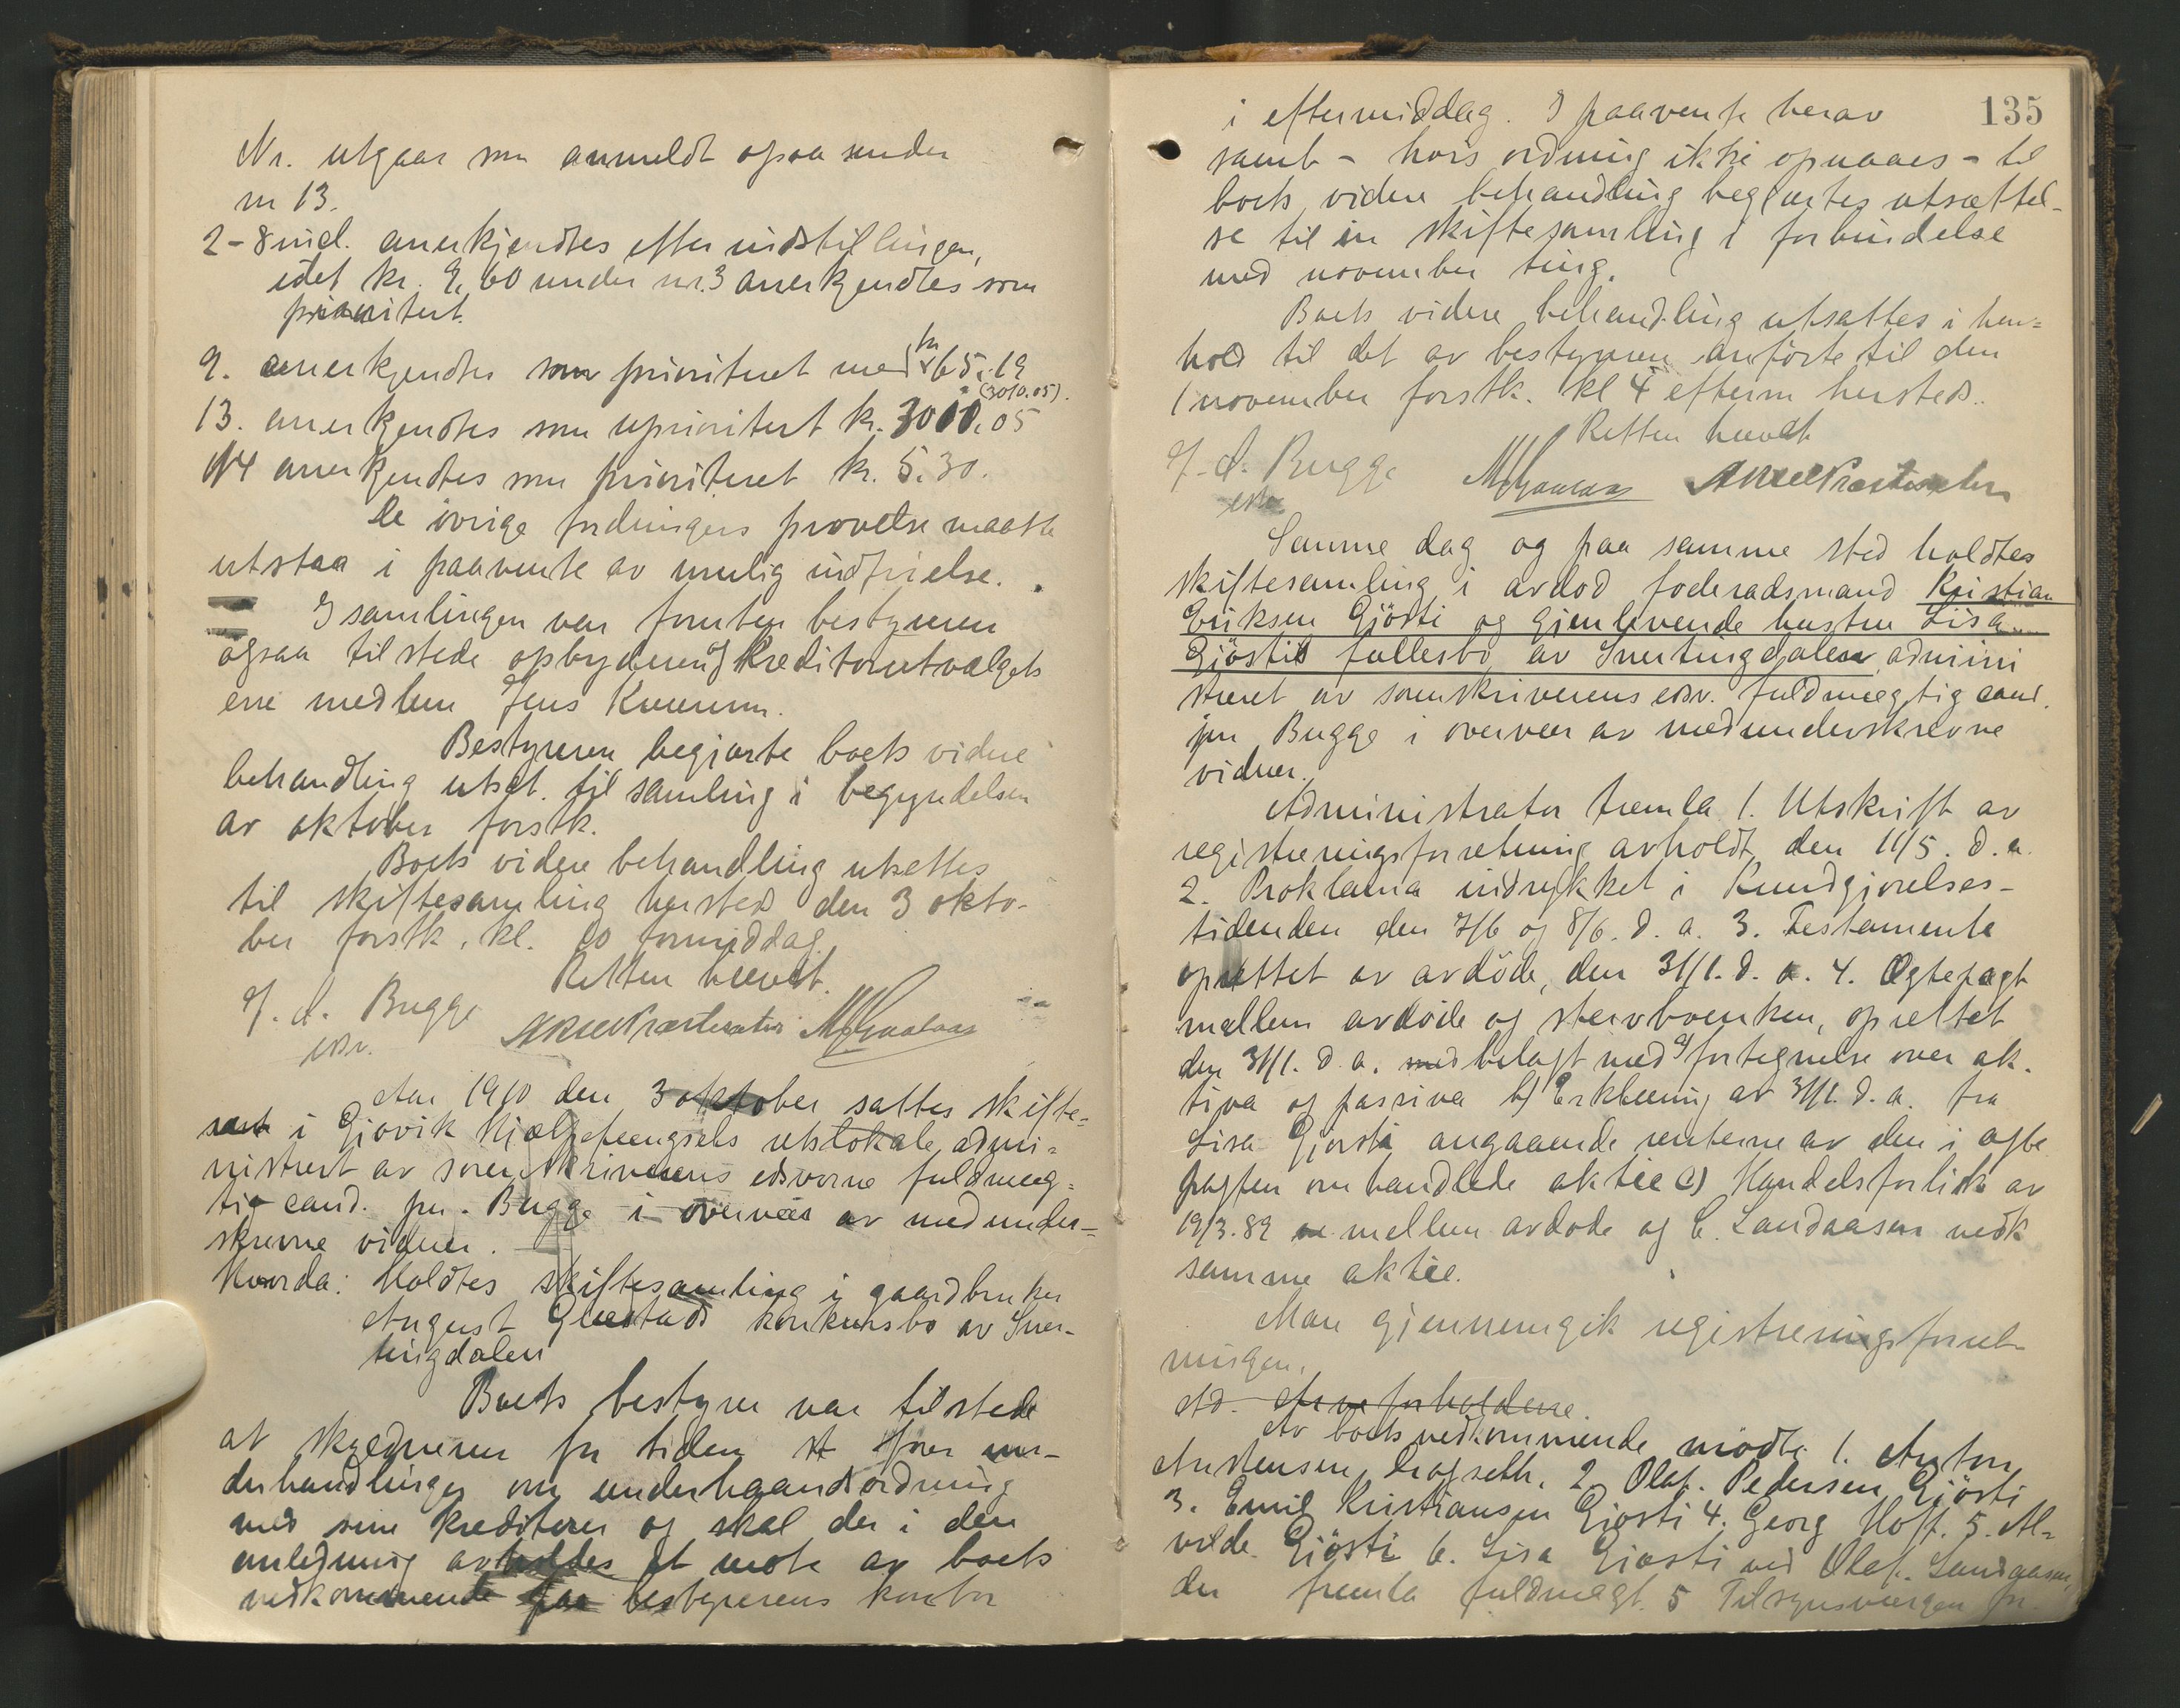 Nr. utgaar som anmeldt ogsaa under
nr 13.
2-8 incl. anerkjendtes efter indstillingen,
idet kr. 9,60 under nr. 3 anerkjendtes som
prioritert.
9. anerkjendtes som prioritert med kr 65.19
(3010.05).
13. anerkjendtes som uprioritert kr. 3010.05
14 anerkjendtes som prioriteret kr. 5.30.
De øvrige fordringers prøvelse maatte
utstaa i paavente av mulig indfrielse.
I samlingen var foruten bestyreren
ogsaa tilstede opbyderen og Kreditorutvalgets
ene medlem Jens
Bestyreren begjærte boets videre
behandling utsat til samling i begyndelsen
av oktober førstk.
Boets videre behandling utsettes
til skiftesamling hersteds den 3 okto-
ber førstk. kl. 10 formiddag.
Retten hævet.
J. A. Bugge
edsv.
Aar 1910 den 3 oktober sattes skifte-
ret i Gjøvik Hjælpefængsels retslokale, admi-
nistrert av sorenskriverens edsvorne fuldmæg-
tig cand. jur. Bugge i overvær av medunder-
skrevne vidner.
Hvorda: Holdtes skiftesamling i gaardbruker
August konkursbo av Sner-
tingdalen
Boets bestyrer var tilstede
at skyldneren for tiden st fører un-
derhandlinger om underhaandsordning
med sine kreditorer og skal der i den
anledning avholdes et møte av boets
vedkommende paa bestyrerens kontor
135
i eftermiddag. I paavente herav
samt - hvis ordning ikke opnaaes - til
boets videre behandling begjærtes utsættel-
se til en skiftesamling i forbindelse
med november ting.
Boets videre behandling utsattes i hen-
hold til det av bestyreren anførte til den
1 november førstk. kl 4 efterm hersteds.
Retten hævet
J. A. Bugge
edsv.
Samme dag og paa samme sted holdtes
skiftesamling i avdød føderadsmand Kristian
Eriksen Gjøsti og gjenlevende hustru Lisa
Gjøstis fællesbo av Snertingdalen, admini
streret av sorenskriverens edsv. fuldmægtig cand.
jur Bugge i overvær av medunderskrevne
vidner.
Administrator fremla 1. Utskrift av
registreringsforretning avholdt den 11/5. d.a.
2. Proklama indrykket i Kundgjørelses-
tidenden den 7/6 og 8/6. d. a. 3. Testamente
oprettet av avdøde, den 31/1. d. a. 4. Ægtepagt
mellem avdøde og stervboenken, oprettet
den 31/1. d. a. med belagt med a) fortegnelse over ak-
tiva og passiva b) Erklæring av 31/1. d. a. fra
Lisa Gjøsti angaaende renterne av den i ægte
pagten omhandlede aktie c) Handelsforlik av
19/3.89 mellem avdøde og C. Landaasen vedk
samme aktie.
Man gjennemgik registreringsforret-
ningen.
Ad. Arveforholdene.
Av boets vedkommende mødte 1. Anton
Anstensen 2. Olaf Pedersen Gjøsti
3. Emil Kristiansen Gjøsti 4. Georg Hoff. 5. Al-
vilde Gjøsti 6. Lisa Gjøsti ved Olaf. Landaasen,
der fremla fuldmagt. 5 Tilsynsvergen for